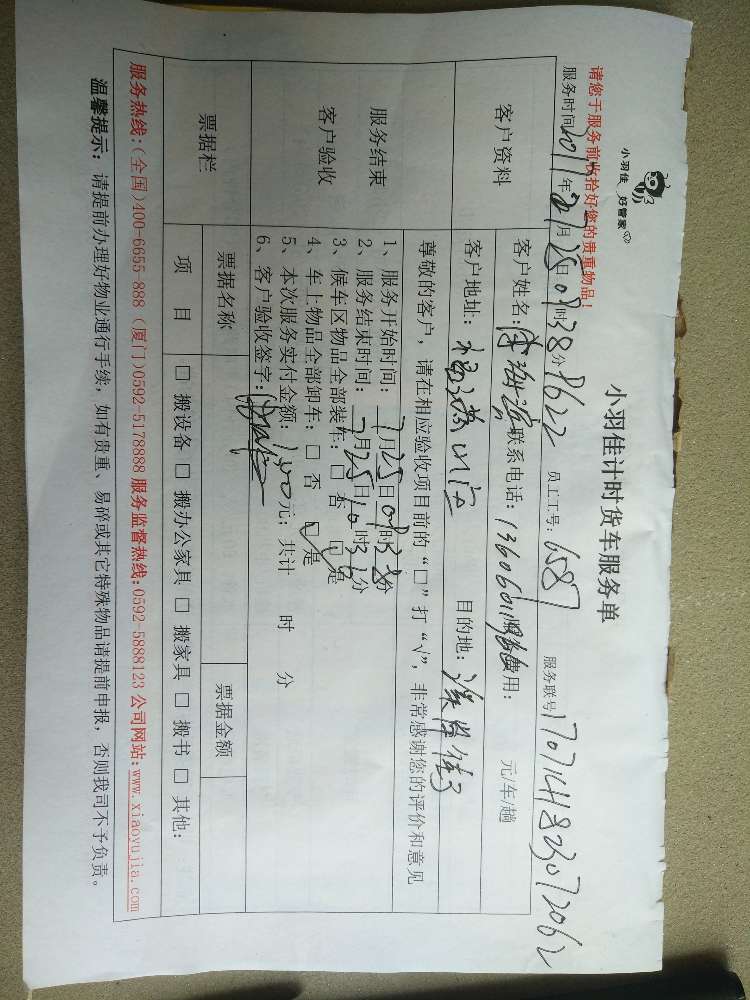 小羽佳 好管家
小羽佳计时货车服务单
请您于服务前收拾好您的贵重物品！
服务时间 年 月25日09时38分 8622 员工工号：6587 服务联号
客户资料
客户姓名： 联系电话： 服务费用： 元/车/趟
客户地址： 目的地：
尊敬的客户，请在相应验收项目前的“□”打“√”，非常感谢您的评价和意见
服务结束
客户验收
1、服务开始时间：7月25日09时38分
2、服务结束时间：7月25日10时 分
3、候车区物品全部装车：□ 否 □ 是
4、车上物品全部卸车：□ 否 □ 是
5、本次服务实付金额： 元；共计 时 分
6、客户验收签字：
票据栏
票据名称 票据金额
项 目 □ 搬设备 □ 搬办公家具 □ 搬家具 □ 搬书 □ 其他：
服务热线：(全国)400-6655-888 (厦门)0592-5178888 服务监督热线：0592-5888123 公司网站：www.xiaoyujia.com
温馨提示：请提前办理好物业通行手续，如有贵重、易碎或其它特殊物品请提前申报，否则我司不予负责。